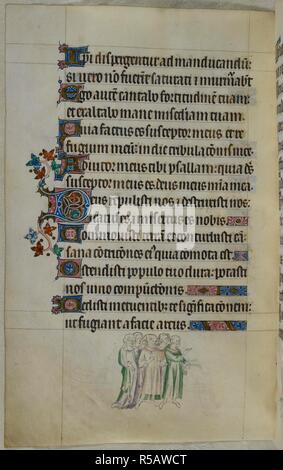 Ipi dispergentur ad manducandū:
si vero nō fuerīt saturati & murmurabūt
Ego autē cantabo fortitudinē tuam:
et exaltabo mane misc̄diam tuam.
Quia factus es susceptor meus: et re
fugium meū: in die tribulacōnis mee
Adiutor meus tibi psallam: quia d̄s
susceptor meus es: deus meus mīa mea.
Deus repulisti nos & destruxisti nos:
iratus es & misertus es nobis.
Cōmouisti terrā et cōturbasti eā:
sana cōtricōnes ei' quia comota est.
Ostendisti populo tuo dura: potasti
nos uino compūctionis
Dedisti metuentib; te significacōnem:
ut fugiant a facie arcus.
alamy
R5AWCT
www.alamy.com